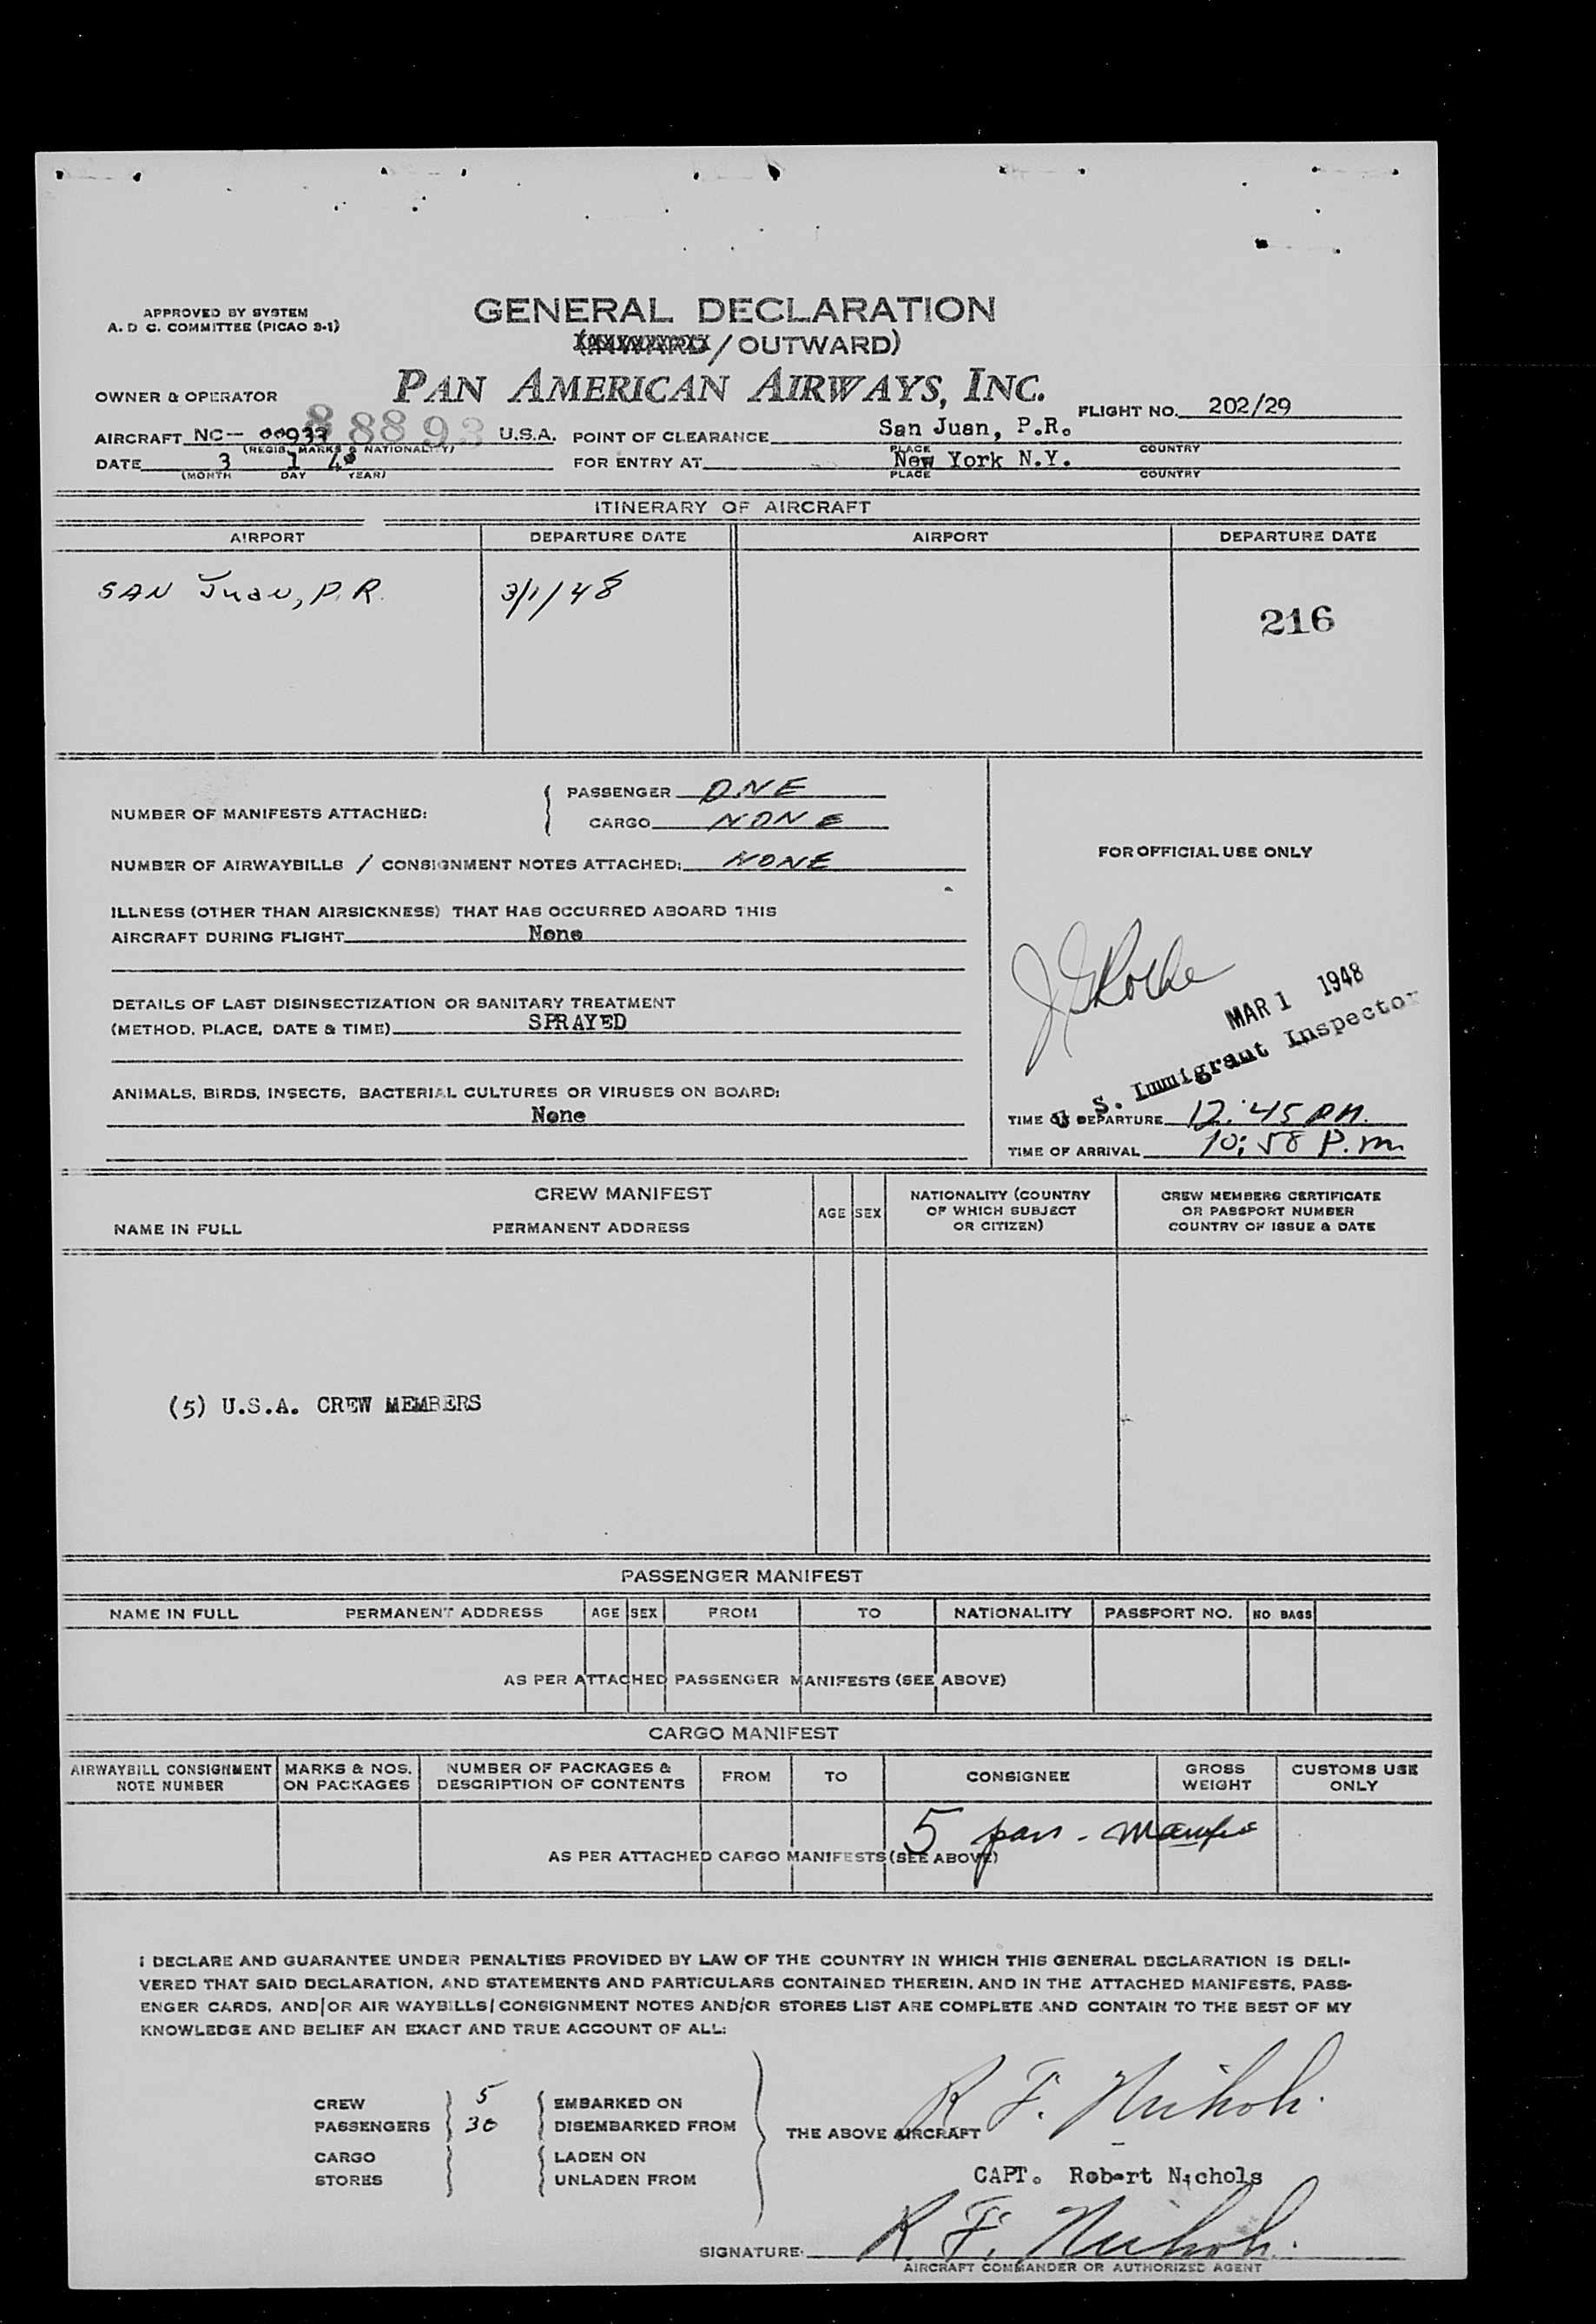 APPROVED BY SYSTEM
A. D C. COMMITTEE (PICAO S-1)
GENERAL DECLARATION
(INWARD / OUTWARD)
PAN AMERICAN AIRWAYS, INC.
OWNER & OPERATOR
FLIGHT NO. 202/29
88893
AIRCRAFT NC- U.S.A. POINT OF CLEARANCE San Juan, P.R.
(REGIS. MARKS & NATIONALITY) PLACE COUNTRY
DATE 3 1 FOR ENTRY AT New York N.Y.
(MONTH DAY YEAR) PLACE COUNTRY
ITINERARY OF AIRCRAFT
AIRPORT DEPARTURE DATE AIRPORT DEPARTURE DATE
SAN Juan, P.R. 3/1/48
216
NUMBER OF MANIFESTS ATTACHED:
PASSENGER ONE
CARGO NONE
NUMBER OF AIRWAYBILLS / CONSIGNMENT NOTES ATTACHED: NONE
ILLNESS (OTHER THAN AIRSICKNESS) THAT HAS OCCURRED ABOARD THIS
AIRCRAFT DURING FLIGHT None
DETAILS OF LAST DISINSECTIZATION OR SANITARY TREATMENT
(METHOD, PLACE, DATE & TIME) SPRAYED
ANIMALS, BIRDS, INSECTS, BACTERIAL CULTURES OR VIRUSES ON BOARD:
None
FOR OFFICIAL USE ONLY
MAR 1 1948
U S. Immigrant Inspector
TIME OF DEPARTURE 12:45 PM.
TIME OF ARRIVAL 10:58 P.m
CREW MANIFEST
NAME IN FULL PERMANENT ADDRESS
AGE SEX
NATIONALITY (COUNTRY
OF WHICH SUBJECT
OR CITIZEN)
CREW MEMBERS CERTIFICATE
OR PASSPORT NUMBER
COUNTRY OF ISSUE & DATE
(5) U.S.A. CREW MEMBERS
PASSENGER MANIFEST
NAME IN FULL PERMANENT ADDRESS AGE SEX FROM TO NATIONALITY PASSPORT NO. NO BAGS
AS PER ATTACHED PASSENGER MANIFESTS (SEE ABOVE)
CARGO MANIFEST
AIRWAYBILL CONSIGNMENT
NOTE NUMBER
MARKS & NOS.
ON PACKAGES
NUMBER OF PACKAGES &
DESCRIPTION OF CONTENTS
FROM TO CONSIGNEE
GROSS
WEIGHT
CUSTOMS USE
ONLY
5
AS PER ATTACHED CARGO MANIFESTS (SEE ABOVE)
I DECLARE AND GUARANTEE UNDER PENALTIES PROVIDED BY LAW OF THE COUNTRY IN WHICH THIS GENERAL DECLARATION IS DELI-
VERED THAT SAID DECLARATION, AND STATEMENTS AND PARTICULARS CONTAINED THEREIN, AND IN THE ATTACHED MANIFESTS, PASS-
ENGER CARDS, AND/OR AIR WAYBILLS/CONSIGNMENT NOTES AND/OR STORES LIST ARE COMPLETE AND CONTAIN TO THE BEST OF MY
KNOWLEDGE AND BELIEF AN EXACT AND TRUE ACCOUNT OF ALL:
CREW 5 EMBARKED ON
PASSENGERS 30 DISEMBARKED FROM
CARGO LADEN ON
STORES UNLADEN FROM
THE ABOVE AIRCRAFT
R F. Nichols
CAPT. Robert Nichols
SIGNATURE: R. F. Nichols
AIRCRAFT COMMANDER OR AUTHORIZED AGENT